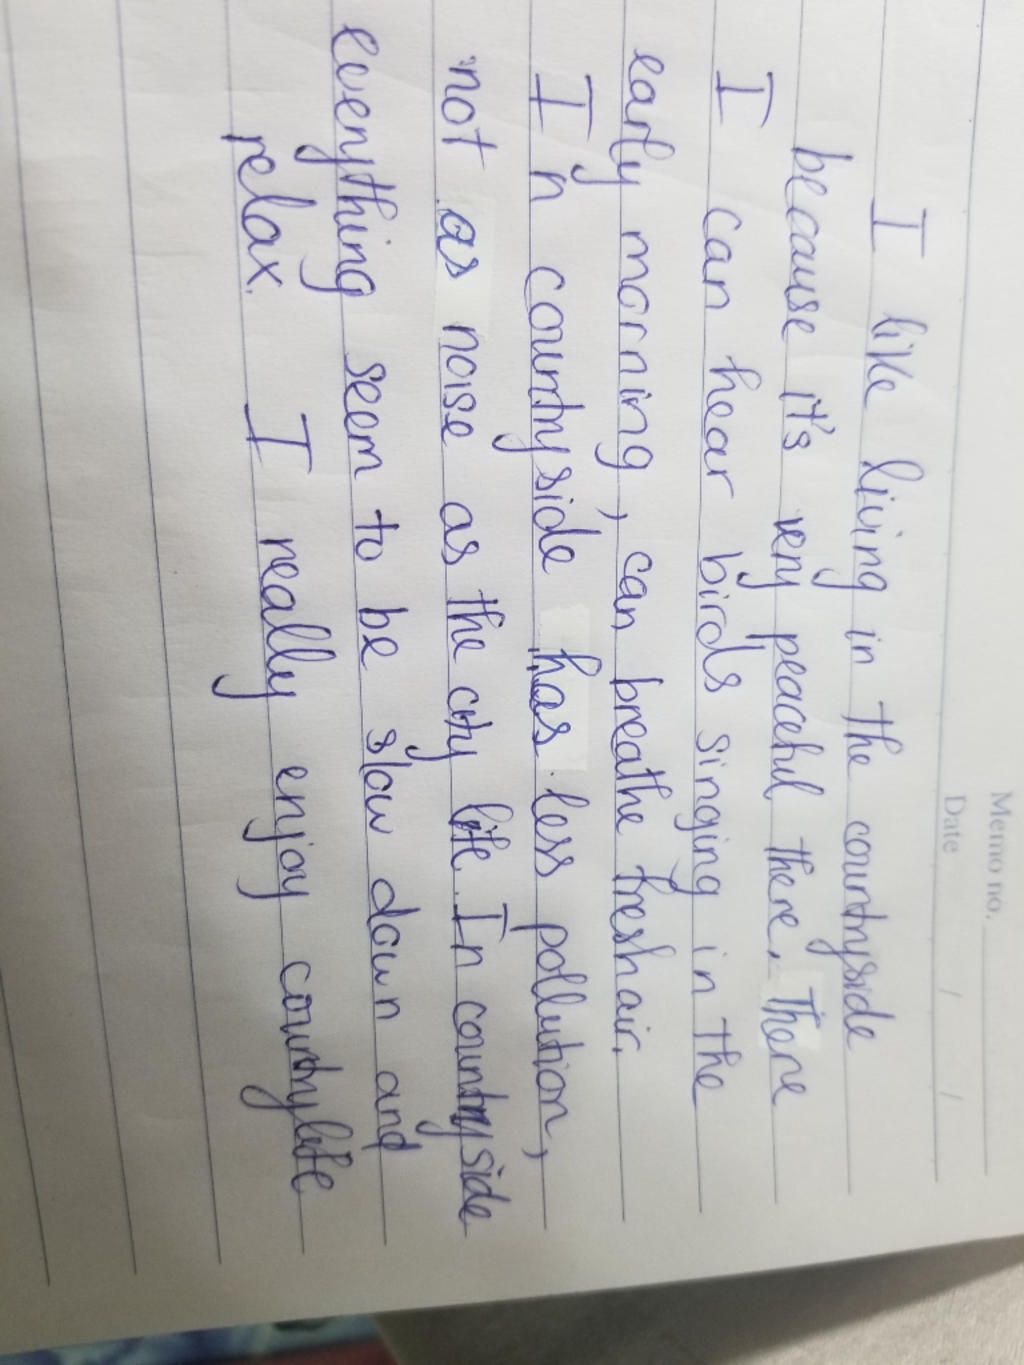 Memo no.
Date / /
I like living in the countryside
because it's very peaceful there. There
I can hear birds singing in the
early morning, can breathe fresh air.
In countryside has less pollution,
not as noise as the city life. In countryside
everything seem to be slow down and
relax. I really enjoy country life